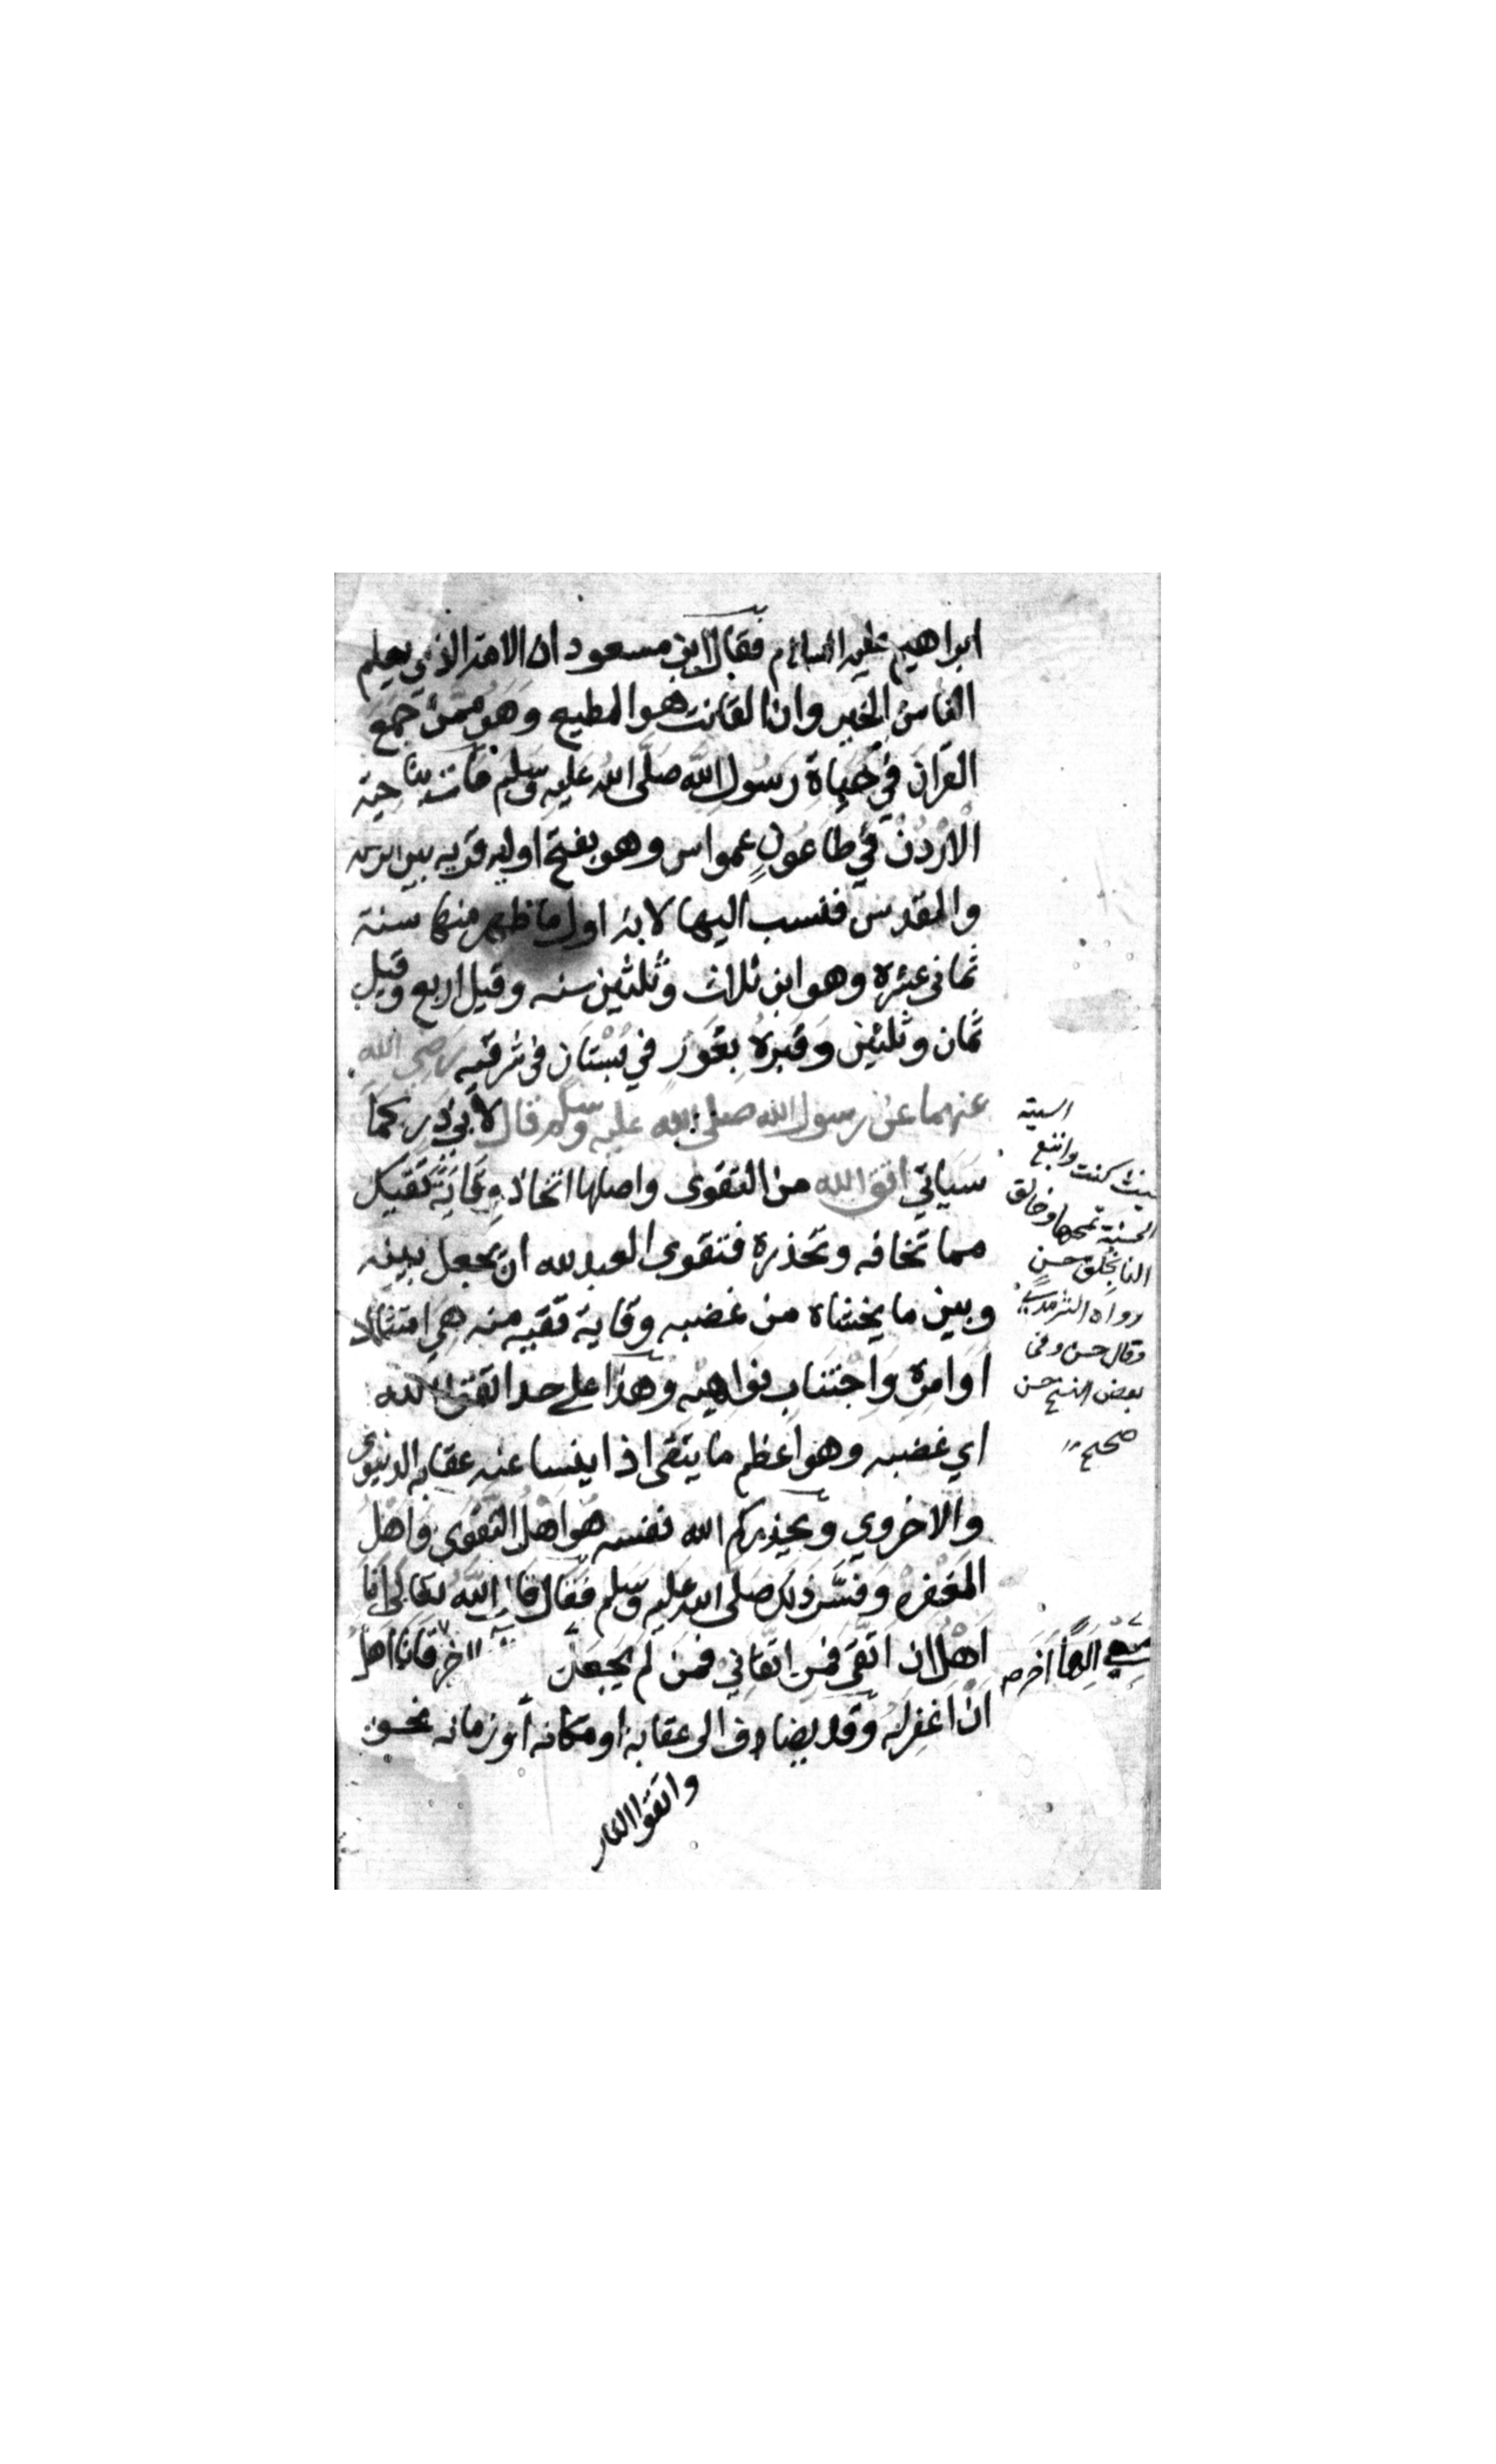 ابراهيم عليه السلام فقال ابن مسعود ان الامة الذي يعلم
الناس الخير وان القانت هو المطيع وهو ممن جمع
القرآن في حياة رسول الله صلى الله عليه وسلم مات بناحية
الاردن في طاعون عمواس وهو بفتح اوليه قرية بين الرملة
والمقدس فنسب اليها لانه اول ما ظهر منها سنة
ثماني عشرة وهو ابن ثلاث وثلثين سنه وقيل اربع وقيل
ثمان وثلثين وقبره بغور في بستان في شرقيه رضي الله
عنهما عن رسول الله صلى الله عليه وسلم قال لابي ذر كما
سياتي اتق الله من التقوى واصلها اتخاذ وقاية تقيك
مما تخافه وتحذره فتقوى العبد لله ان يجعل بينه
وبين ما يخشاه من غضبه وقاية تقيه منه هي امتثال
اوامره واجتناب نواهيه وهذا على حد اتقوا الله
اي غضبه وهو اعظم ما يتقى اذ ينشا عنه عقابه الدنيوي
والاخروي ويحذركم الله نفسه هو اهل التقوى واهل
المغفرة وفسر ذلك صلى الله عليه وسلم فقال قال الله تعالى انا
اهل ان اتقى فمن اتقاني فمن لم يجعل اخر فانا اهل
ان اغفر له وقد يضاف الى عقابه او مكانه او زمانه نحو
واتقوا النار
السيئة
حيث كنت واتبع
الحسنة تمحها وخالق
الناس بخلق حسن
رواه الترمذي
وقال حسن وفي
بعض النسخ حسن
صحيح
معي الها اخر صح